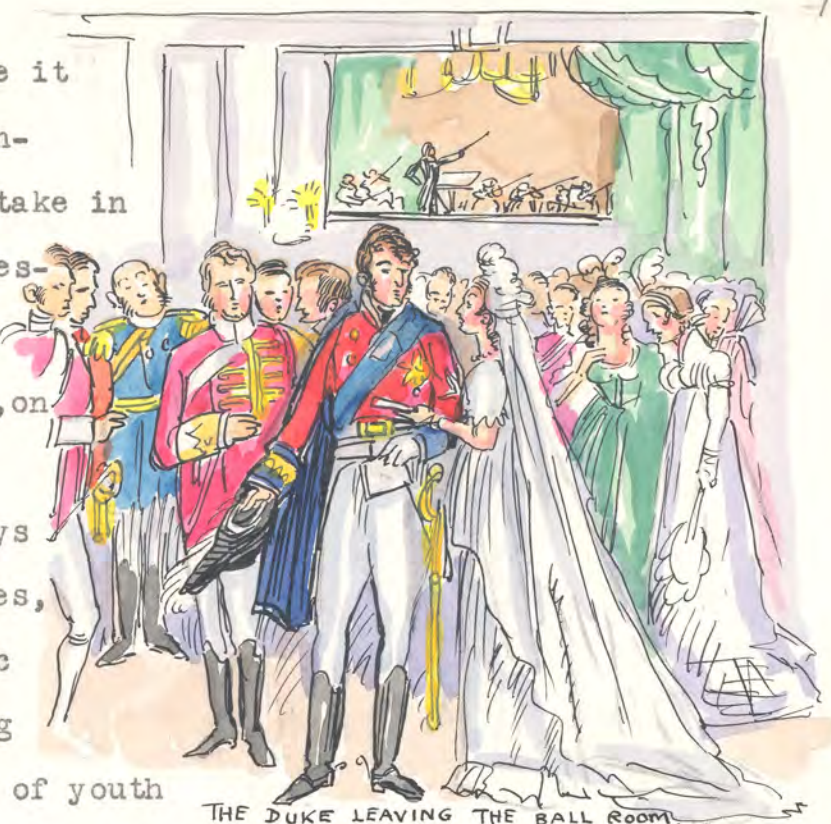 e it
n-
take in
es-
,on
ys
es,
c
g
of youth
THE DUKE LEAVING THE BALL ROOM